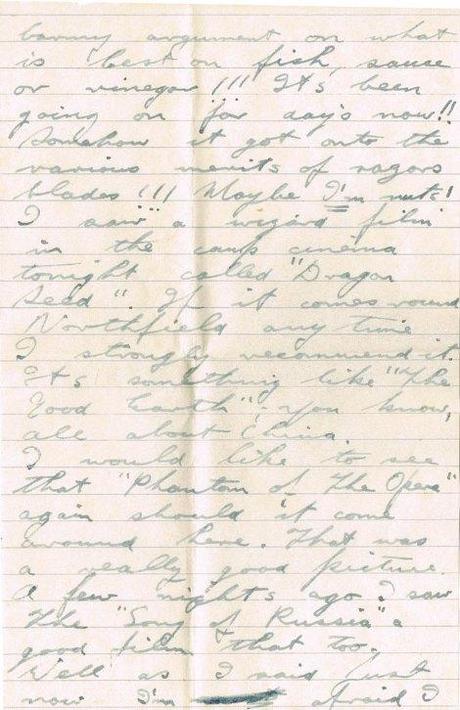 barmy argument on what
is best on fish, sauce
or vinegar!!! Its been
going on for days now!!
Somehow it got onto the
various merits of razors
blades!!! Maybe I'm nuts!
I saw a wizard film
in the camp cinema
tonight called "Dragon
Seed". If it comes round
Northfield any time
I strongly recommend it.
Its something like "The
Good Earth"; you know,
all about China.
I would like to see
that "Phantom of the Opera"
again should it come
around here. That was
a really good picture.
A few nights ago I saw
the "Song of Russia" a
good film that too.
Well as I said just
now I'm afraid I